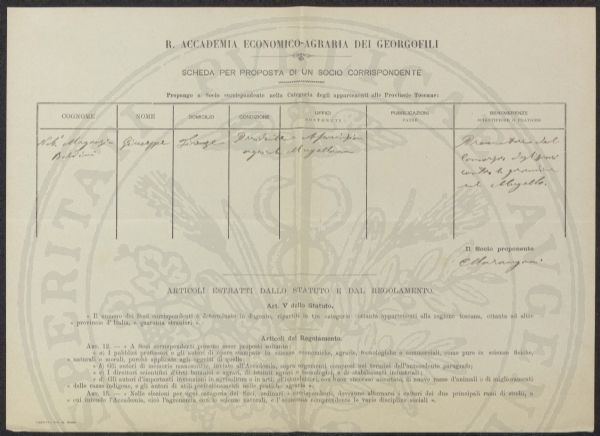 R. ACCADEMIA ECONOMICO-AGRARIA DEI GEORGOFILI
SCHEDA PER PROPOSTA DI UN SOCIO CORRISPONDENTE
Propongo a Socio corrispondente nella Categoria degli appartenenti alle Provincie Toscane:
COGNOME NOME DOMICILIO CONDIZIONE UFFICI SOSTENUTI PUBBLICAZIONI FATTE BENEMERENZE SCIENTIFICHE O PRATICHE
Giuseppe Firenze Presidente Promotore del
Consorzo
contro la grandine
nel Mugello.
Il Socio proponente
C Marangoni
ARTICOLI ESTRATTI DALLO STATUTO E DAL REGOLAMENTO.
Art. V dello Statuto.
« Il numero dei Soci corrispondenti è determinato in dugento, ripartiti in tre categorie: ottanta appartenenti alla regione toscana, ottanta ad altre
« provincie d'Italia, e quaranta stranieri ».
Articoli del Regolamento.
ART. 12. — « A Soci corrispondenti possono esser proposti soltanto:
« a) I pubblici professori e gli autori di opere stampate in scienze economiche, agrarie, tecnologiche e commerciali, come pure in scienze fisiche,
« naturali e morali, purchè applicate agli oggetti di quelle;
« b) Gli autori di memorie manoscritte, inviate all'Accademia, sopra argomenti compresi nei termini dell'antecedente paragrafo;
« c) I direttori scientifici d'Orti botanici e agrari, di Istituti agrari e tecnologici, e di stabilimenti industriali;
« d) Gli autori d'importanti invenzioni in agricoltura o in arti, gl'introduttori, con buon successo accertato, di nuove razze d'animali o di miglioramenti
« delle razze indigene, e gli autori di utili perfezionamenti nelle pratiche agrarie ».
ART. 15. — « Nelle elezioni per ogni categoria dei Soci, ordinari e corrispondenti, dovranno alternarsi i cultori dei due principali rami di studio,
« cui intende l'Accademia, cioè l'agronomia con le scienze naturali, e l'economia comprendente le varie discipline sociali ».